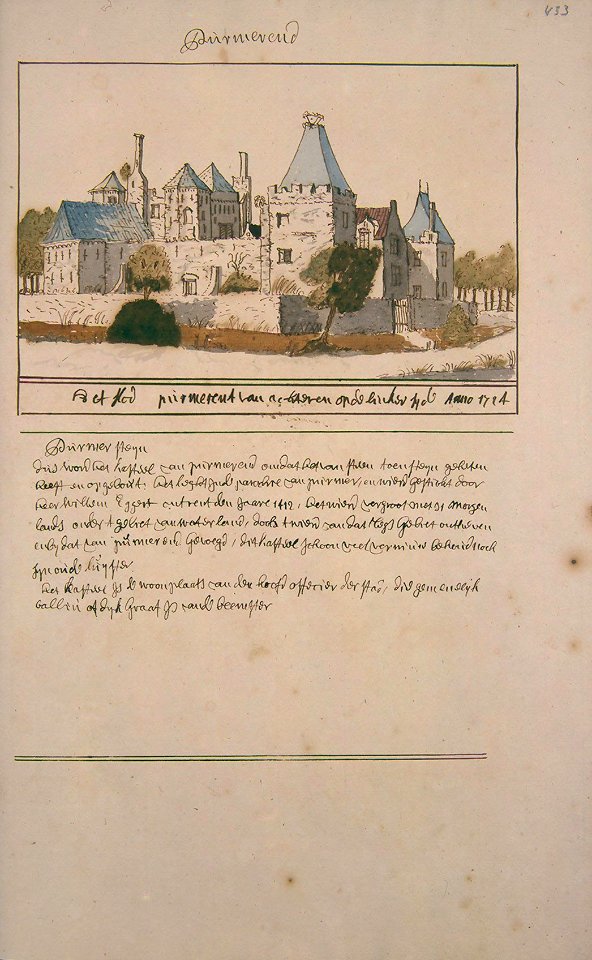 433
Purmerend
Het slod purmerent van achteren op de linker zyde Anno 1724
Purmer steyn
dus word het kasteel van purmerend omdat het van steen
heeft en opgebouwt. het legt in de van purmer, en wierd gesticht door
heer Willem Eggert omtrent den Jaare 1412, het wierd vergroot met 21 morgen
lands onder t gebiet van waterland, doch t wierd van dat Regs gebiet ontheven
en by dat van purmerend gevoegd, dit kasteel schoon veel vernieut behoud noch
zyn oude luyster
het kasteel is de woonplaats van den hoofd officier der stad, die gemenelyk
balliu of dyk graaf is van de beemster